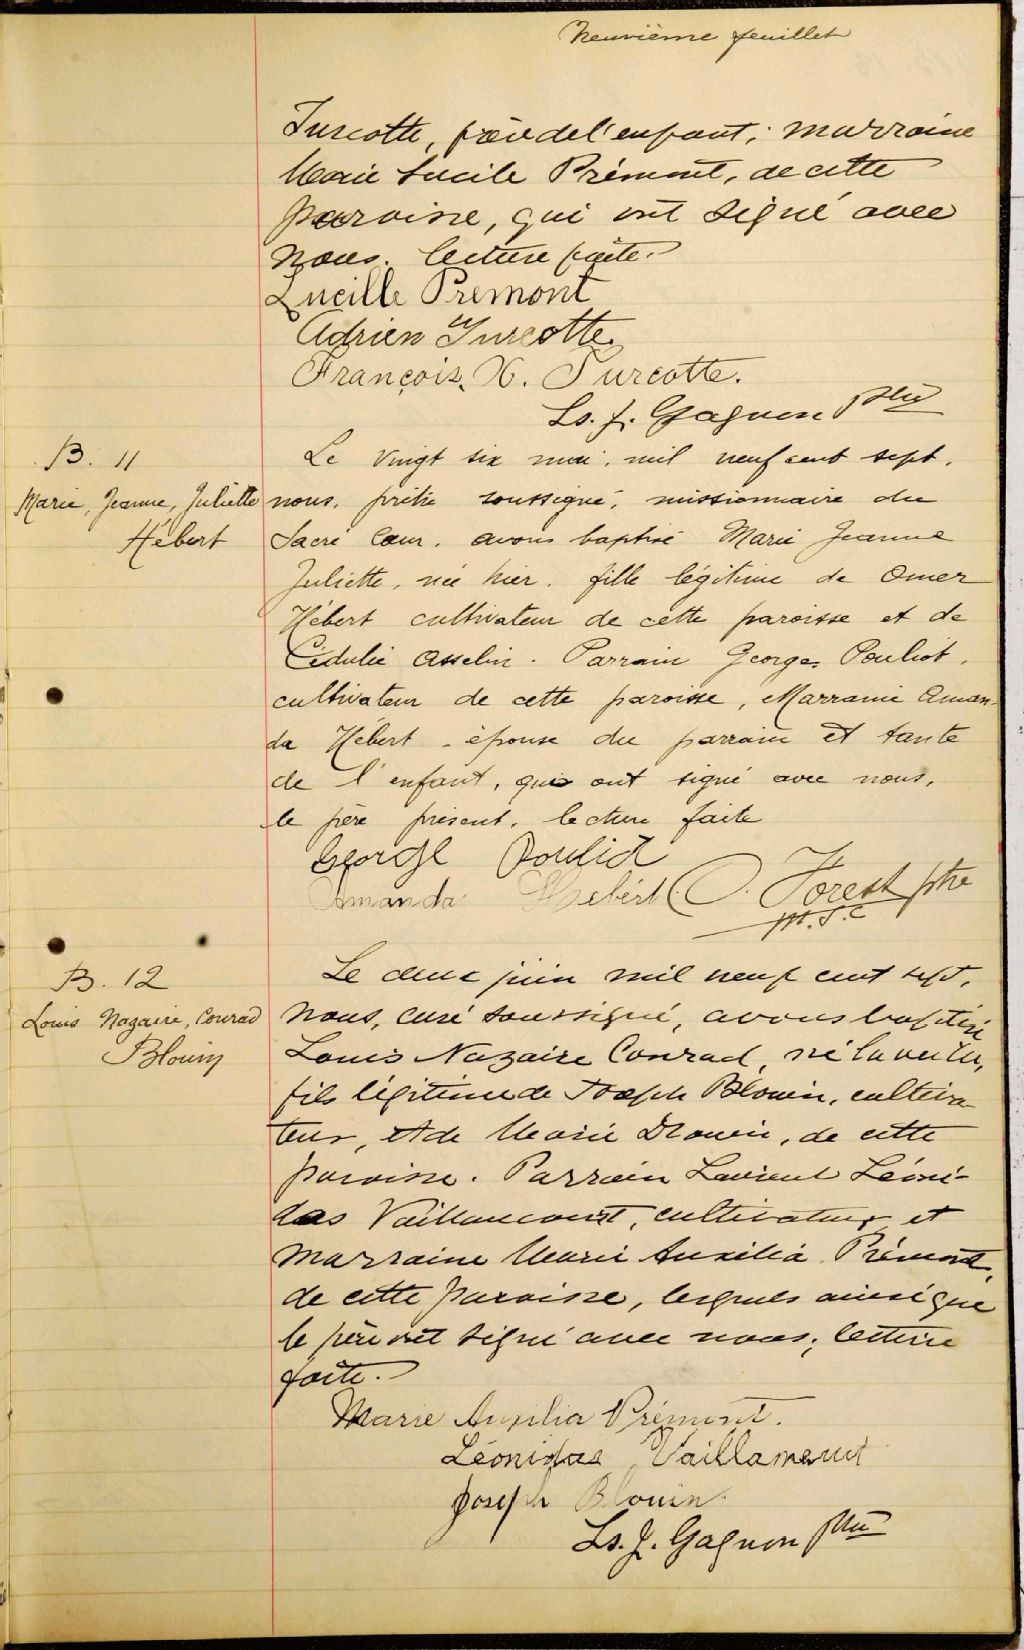 Neuvième feuillet
Turcotte, père de l'enfant; marraine
Marie Lucile Prémont, de cette
paroisse, qui ont signé avec
nous. lecture faite.
Lucille Premont
Adrien Turcotte.
François. X. Turcotte.
Ls. J. Gagnon ptre
B. 11
Marie, Jeanne, Juliette
Hébert
Le vingt six mai, mil neuf cent sept,
nous, prêtre soussigné, missionnaire du
Sacré Cœur, avons baptisé Marie Jeanne
Juliette, née hier, fille légitime de Omer
Hébert cultivateur de cette paroisse et de
Cédulie Asselin. Parrain Georges Pouliot,
cultivateur de cette paroisse, Marraine Aman-
da Hébert - épouse du parrain et tante
de l'enfant, qui ont signé avec nous,
le père présent, lecture faite
George Pouliot
Amanda Hebért O. Forest ptre
m.s.c
B. 12
Louis Nazaire, Conrad
Blouin
Le deux juin mil neuf cent sept,
nous, curé soussigné, avons baptisé
Louis Nazaire Conrad, né la veille,
fils légitime de Joseph Blouin, cultiva-
teur, et de Marie Drouin, de cette
paroisse. Parrain Laurent Léoni-
das Vaillancourt, cultivateur, et
marraine Marie Auxilia Prémont,
de cette paroisse, lesquels ainsi que
le père ont signé avec nous; lecture
faite.
Marie Auxilia Prémont.
Léonidas Vaillancourt
Joseph Blouin.
Ls. J. Gagnon ptre